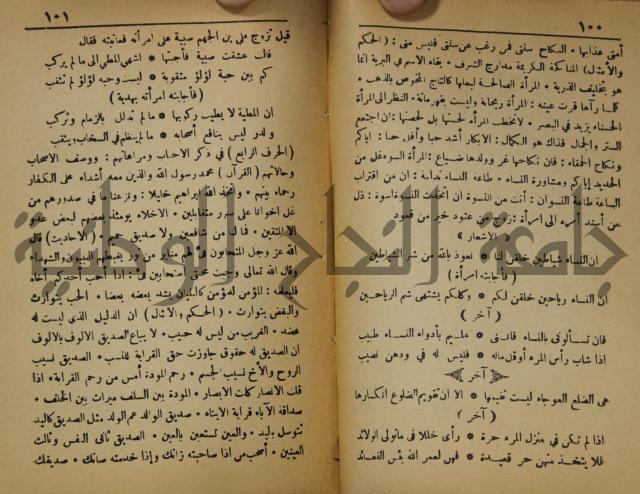 ١٠٠
أمتى عذابها * النكاح سنتى فمن رغب عن سنتى فليس منى : ( الحكم
والأمثال ) المناكحة الكريمة مدارج الشرف * بقاء الاسم في البرية انما
هو بتخليف الذرية * المرأة الصالحة لبعلها كالتاج المخوص بالذهب *
كلما رآها قرت عينه : المرأة ريحانة وليست بقهرمانة * النظر الى المرأة
الحسناء يزيد في البصر * لاتخطب المرأه لحسنها بل لحصنها: ان اجتمع
الستر والجمال فذاك هو الكمال : الابكار أشد حبا وأقل خبا : اياكم
ونكاح الحمقاء : فان نكاحها غرر وولدها ضياع : المرأة السوء غل من
الحديد إياكم ومشاورة النساء * طاعة النساء ندامة : ان من اقتراب
الساعة طاعة النسوان :
من أسند أمره الى امرأة : تزوج من
الاشعار
ان النساء شياطين خلقن لنا * نعوذ بالله من شر الشياطين
( فأجابته امرأة )
ان النساء رياحين خلقن لكم * وكلكم يشتهى شم الرياحين
( آخر )
فان تسألونى بالنساء فاننى * عليم بأدواء النساء طبيب
اذا شاب رأس المرء أو قل ماله * فليس له في ودهن نصيب
آخر
هى الضلع العوجاء ليست تقيمها * ألا ان تقويم الضلوع انكسارها
( آخر )
اذا لم تكن في منزل المرء حرة * رأى خللا فى ماتولى الولائد
فلا يتخذ منهن حر قعيدة * فهن لعمر الله بئس القعائد
١٠١
قيل تزوج على بن الجهم صبية على امرأته فعاتبته فقال
قالت عشقت صبية فأجبتها * اشهى المطي الى ما لم يركب
كم بين حبة لؤلؤ مثقوبة * ليست وحبه لؤلؤ لم تثقب
( فأجابته امرأته بهدية )
ان المطية لا يطيب ركوبها * ما لم تذلل بالزمام وتركب
والدر ليس بنافع أصحابه * مالم ينظم في السخاب ويثقب
( الحرف الرابع ) في ذكر الاحباب ومراعاتهم : ووصف الاصحاب
وحالاتهم ( القرآن ) محمد رسول الله والذين معه أشداء على الكفار
رحماء بينهم * واتخذ الله ابراهيم خليلا : ونزعنا ما في صدورهم من
غل اخوانا على سرر متقابلين * الاخلاء يومئذ بعضهم لبعض عدو
الا المتقين * فما لنا من شافعين ولا صديق حميم * ( الاحاديث ) قال
الله عز وجل المتحابون في لهم منابر من نور يغبطهم النبيون والشهداء
وقال الله تعالى وجبت محبتى للمتحابين فى : اذا أحب أحدكم أخاه
فليعلمه : المؤمن للمؤمن كالبنيان يشد بعضه بعضا * الحب يتوارث
والبغض يتوارث * ( الحكم والامثال ) ان الدليل الذي ليست له
عضد * الغريب من ليس له حبيب * لا يباع الصديق الالوف بالالوف
ان الصديق له حقوق جاوزت حق القرابة للنسب * الصديق نسيب
الروح والأخ نسيب الجسم * رحم المودة أمس من رحم القرابة* اذا
قلت الانصار كلت الابصار * المودة بين السلف ميراث بين الخلف *
صداقة الآباء قرابة الابناء * صديق الوالد عم الولد مثل الصديق كاليد
تتوسل باليد * والعين تستعين بالعين * الصديق ثانى النفس وثالث
العينين * أصحب من اذا صاحبته زانك واذا خدمته صانك * صديقك
جامعة النجاح الوطنية